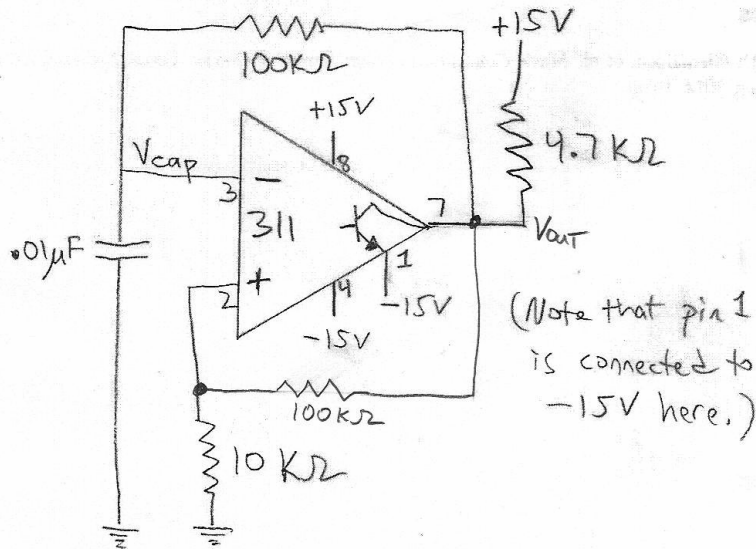 100KΩ
+15V
+15V
4.7 KΩ
Vcap
8
3
−
7
311
Vout
.01µF
1
+
2
4
−15V
−15V
(Note that pin 1
is connected to
−15V here.)
100KΩ
10 KΩ